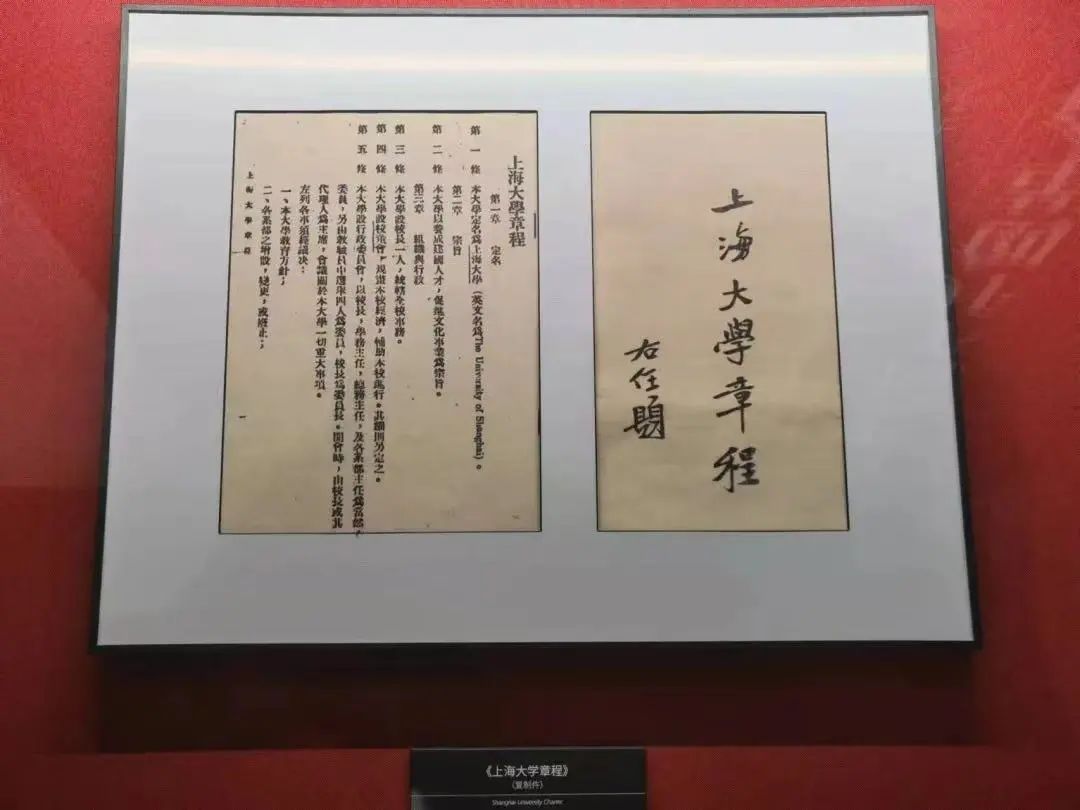 上海大學章程
右任題
上海大學章程
第一章 定名
第一條 本大學定名爲上海大學(英文名爲The University of Shanghai)。
第二章 宗旨
第二條 本大學以養成建國人才,促進文化事業爲宗旨。
第三章 組織與行政
第三條 本大學設校長一人,統轄全校事務。
第四條 本大學設校董會,規畫本校經濟,輔助本校進行。其細則另定之。
第五條 本大學設行政委員會,以校長,學務主任,總務主任,及各系部主任爲當然
委員,另由教職員中選舉四人爲委員,校長爲委員長。開會時,由校長或其
代理人爲主席,會議關於本大學一切重大事項。
左列各事須經議決:
一、本大學教育方針;
二、各系部之增設,變更,或廢止;
上海大學章程
一
《上海大学章程》
(复制件)
Shanghai University Charter